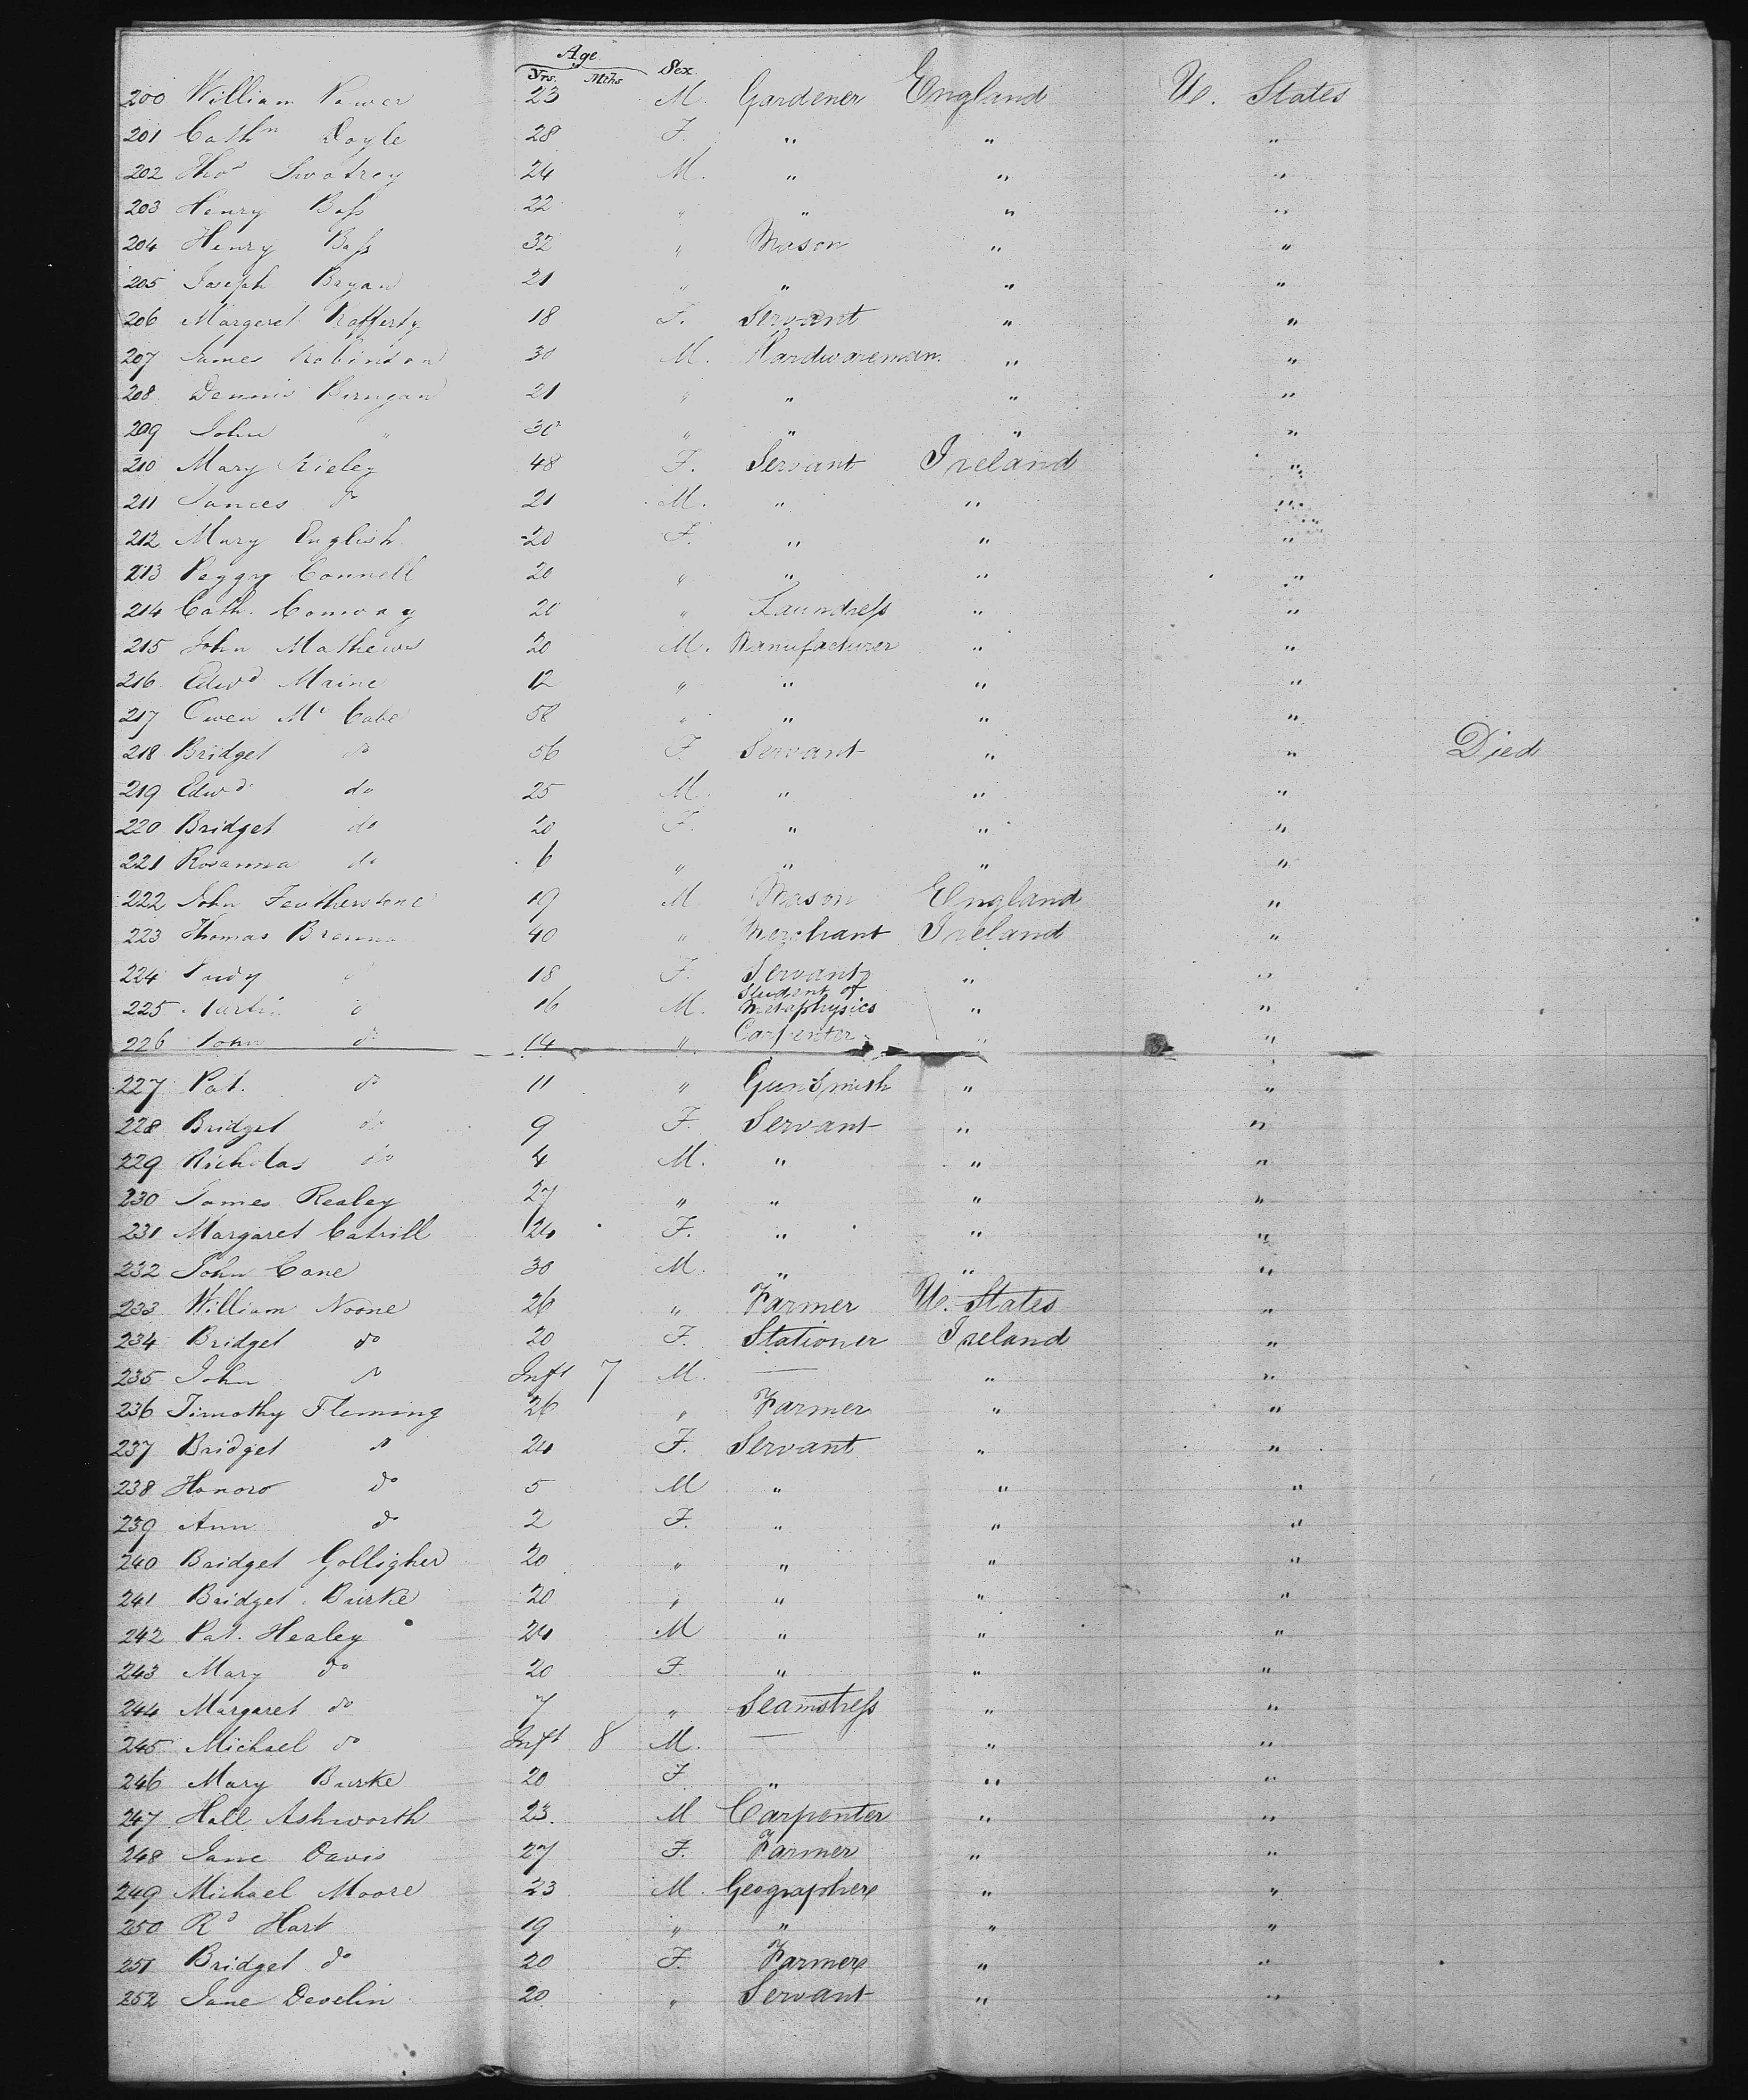 Age
Yrs. Mths Sex
200 William Power 23 M. Gardener England U. States
201 Cathn Doyle 28 F. " " "
202 Thos 24 M. " " "
203 Henry Bass 22 " " " "
204 Henry Bass 32 " Mason " "
205 Joseph Bryan 21 " " " "
206 Margeret Rafferty 18 F. Servant " "
207 James Robinson 30 M. Hardwareman " "
208 Dennis 21 " " " "
209 John " 30 " " " "
210 Mary Rieley 48 F. Servant Ireland "
211 do 21 M. " " "
212 Mary English 20 F. " " "
213 Peggy Connell 20 " " " "
214 Cath. Conway 20 " Laundress " "
215 John Mathews 20 M. Manufacturer " "
216 Edwd Maine 12 " " " "
217 Owen Mc Cabe 58 " " " "
218 Bridget do 56 F. Servant " " Died
219 Edwd do 25 M. " " "
220 Bridget do 20 F. " " "
221 Rosanna do 6 " " " "
222 John Featherstone 19 M Mason England "
223 Thomas Brenna 40 " Merchant Ireland "
224 Judy do 18 F. Servant " "
225 Martin do 16 M. Student of Metaphysics " "
226 John do 14 " Carpenter " "
227 Pat. do 11 " GunSmith " "
228 Bridget do 9 F. Servant " "
229 Nicholas do 4 M. " " "
230 James Realey 27 " " " "
231 Margaret Catrill 24 F. " " "
232 John Cane 30 M. " " "
233 William Noone 26 " Farmer U. States "
234 Bridget do 20 F. Stationer Ireland "
235 John do Inft 7 M. — " "
236 Timothy Fleming 26 " Farmer " "
237 Bridget do 24 F. Servant " "
238 Honoro do 5 M " " "
239 Ann do 2 F. " " "
240 Bridget Golligher 20 " " " "
241 Bridget Burke 20 " " " "
242 Pat. Healey 24 M " " "
243 Mary do 20 F. " " "
244 Margaret do 7 " Seamstress " "
245 Michael do Inft 8 M. — " "
246 Mary Burke 20 F " " "
247 Hall Ashworth 23. M Carpenter " "
248 Jane Davis 27 F. Farmer " "
249 Michael Moore 23 M. Geographer " "
250 Rd Hart 19 " " " "
251 Bridget do 20 F. Farmer " "
252 Jane Develin 20 " Servant " "